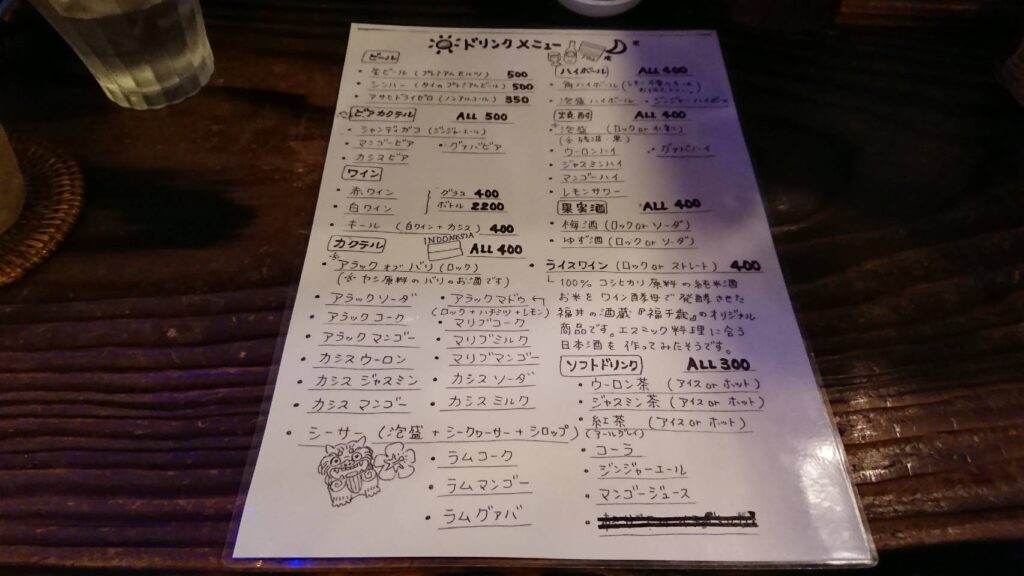 ドリンクメニュー
ビール
・生ビール (プレミアムモルツ) 500
・シンハー (タイのプレミアムビール) 500
・アサヒドライゼロ (ノンアルコール) 350
ビアカクテル ALL 500
・シャンディガフ (ジンジャーエール)
・マンゴービア ・グァバビア
・カシスビア
ワイン
・赤ワイン グラス 400
・白ワイン ボトル 2200
・キール (白ワイン+カシス) 400
カクテル INDONESIA ALL 400
・アラック オブ バリ (ロック)
(※ ヤシ原料のバリのお酒です)
・アラックソーダ ・アラックマドゥ
(ロック+ハチミツ+レモン)
・アラックコーク ・マリブコーク
・アラックマンゴー ・マリブミルク
・カシスウーロン ・マリブマンゴー
・カシスジャスミン ・カシスソーダ
・カシスマンゴー ・カシスミルク
・シーサー (泡盛+シークヮーサー+シロップ)
・ラムコーク
・ラムマンゴー
・ラムグァバ
ハイボール ALL 400
・角ハイボール
・泡盛ハイボール ・ジンジャーハイボール
焼酎 ALL 400
・泡盛 (ロック or 水割り)
・ウーロンハイ ・グァバハイ
・ジャスミンハイ
・マンゴーハイ
・レモンサワー
果実酒 ALL 400
・梅酒 (ロック or ソーダ)
・ゆず酒 (ロック or ソーダ)
ライスワイン (ロック or ストレート) 400
100% コシヒカリ原料の純米酒
お米をワイン酵母で発酵させた
福井の酒蔵『福千歳』のオリジナル
商品です。エスニック料理に合う
日本酒を作ってみたそうです。
ソフトドリンク ALL 300
・ウーロン茶 (アイス or ホット)
・ジャスミン茶 (アイス or ホット)
・紅茶 (アイス or ホット)
(アールグレイ)
・コーラ
・ジンジャーエール
・マンゴージュース